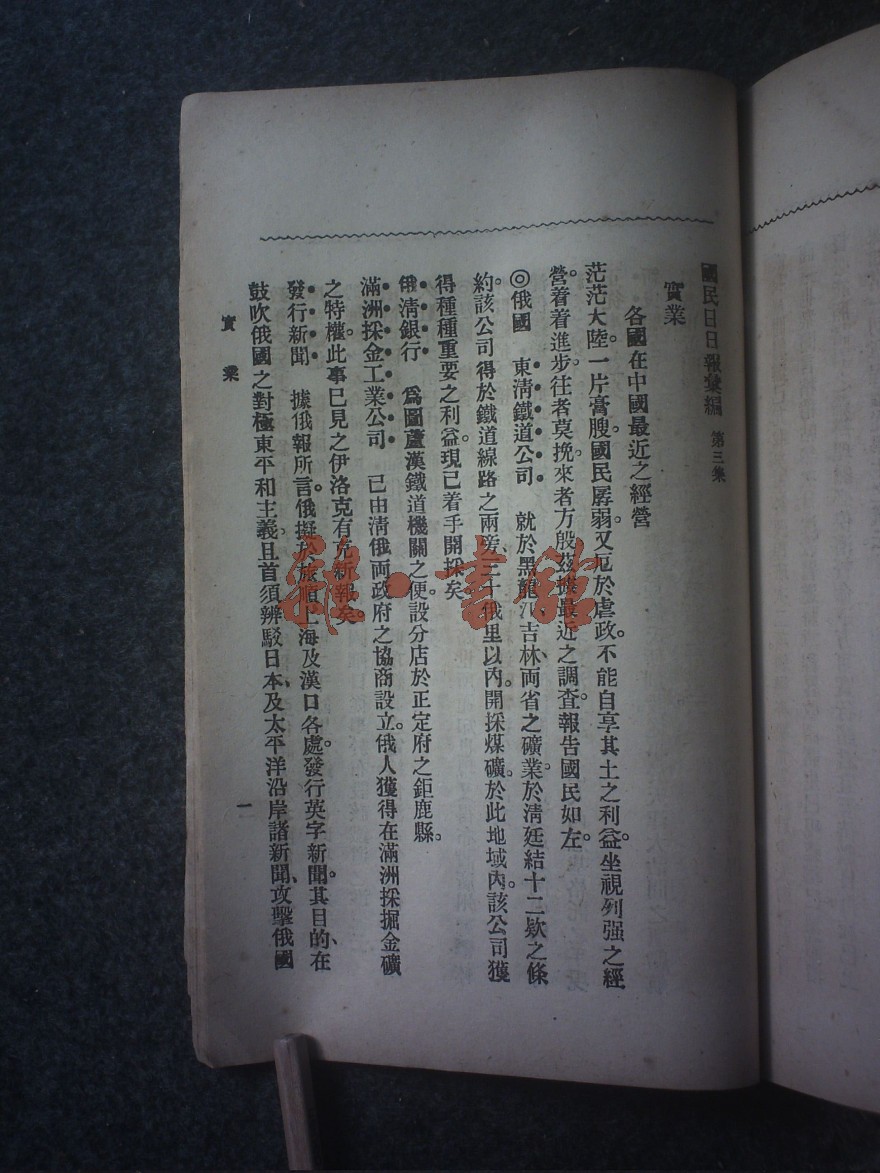 國民日日報彙編 第三集
實業
各國在中國最近之經營
茫茫大陸。一片膏腴。國民孱弱。又厄於虐政。不能自享其土之利益。坐視列强之經
營着着進步。往者莫挽。來者方殷。茲據最近之調査。報告國民如左。
◎俄國 東淸鐵道公司 就於黑龍江、吉林、両省之礦業。於淸廷結十二欵之條
約。該公司得於鐵道線路之兩旁、三十俄里以內。開採煤礦。於此地域內。該公司獲
得種種重要之利益。現已着手開採矣。
俄淸銀行 爲圖蘆漢鐵道機關之便。設分店於正定府之鉅鹿縣。
滿洲採金工業公司 已由淸俄両政府之協商設立。俄人獲得在滿洲採掘金礦
之特權。此事已見之伊洛克有克新報矣。
發行新聞 據俄報所言。俄擬於旅順上海及漢口各處。發行英字新聞。其目的、在
鼓吹俄國之對極東平和主義。且首須辨駁日本、及太平洋沿岸諸新聞、攻擊俄國
實業
一
雜·書館